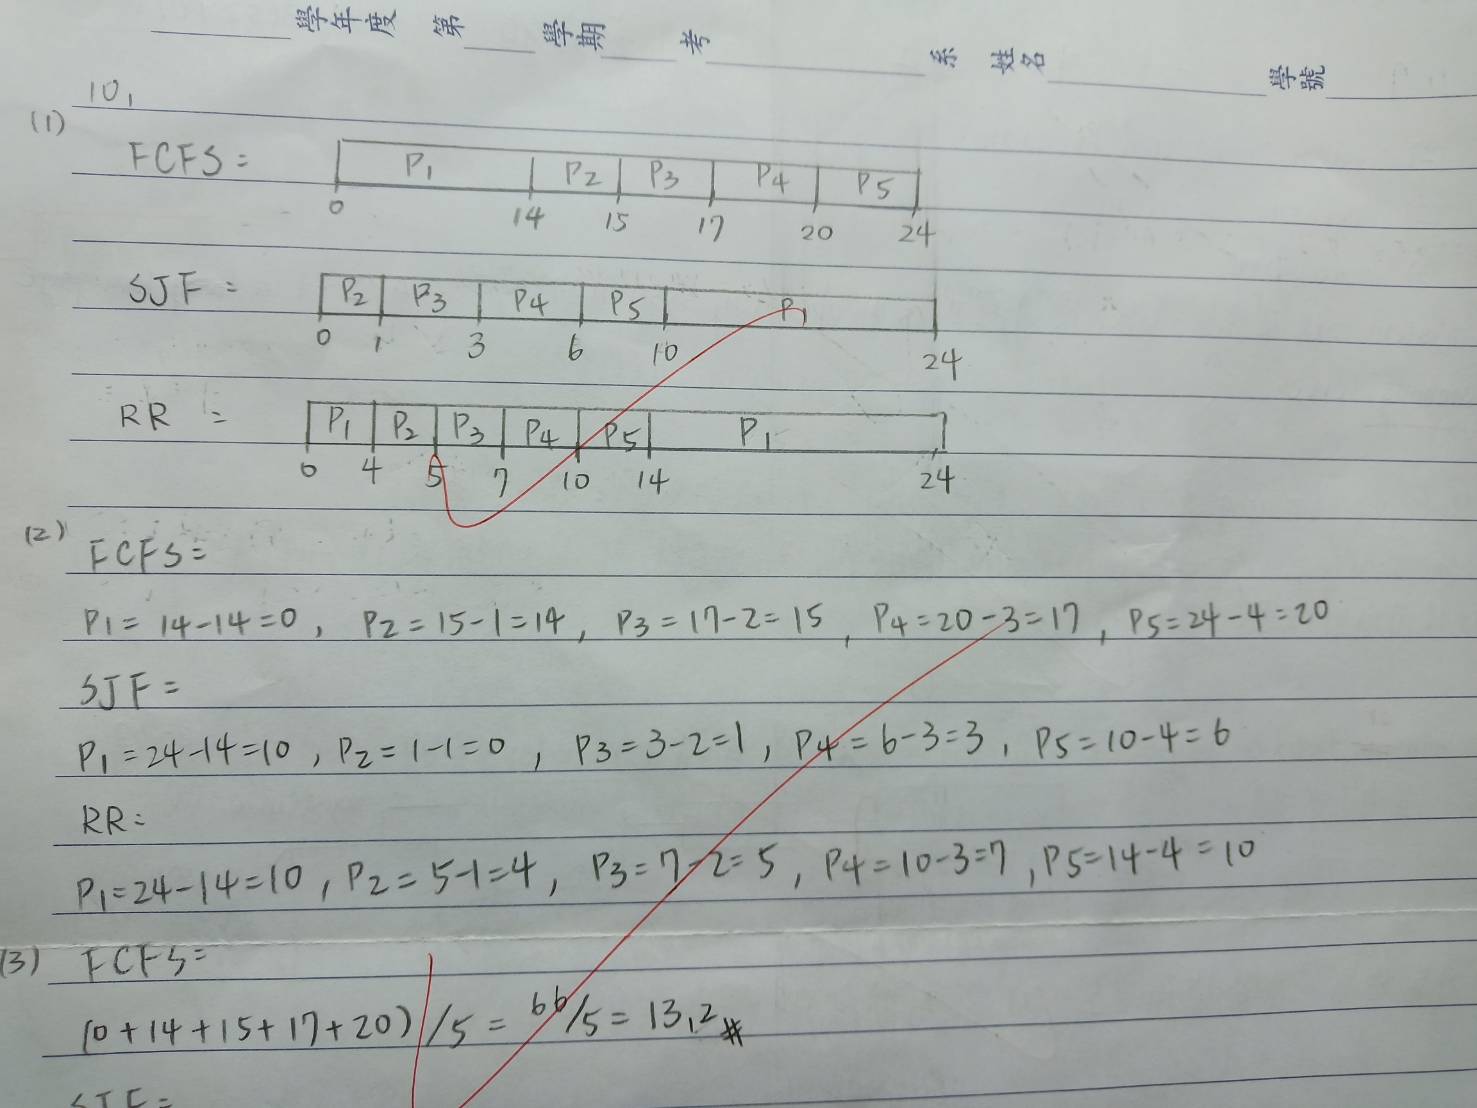 學年度 第 學期 考 系 姓名 學號
10,
(1)
FCFS= P1 P2 P3 P4 P5
0 14 15 17 20 24
SJF= P2 P3 P4 P5 P1
0 1 3 6 10 24
RR= P1 P2 P3 P4 P5 P1
0 4 5 7 10 14 24
(2) FCFS=
P1=14-14=0, P2=15-1=14, P3=17-2=15, P4=20-3=17, P5=24-4=20
SJF=
P1=24-14=10, P2=1-1=0, P3=3-2=1, P4=6-3=3, P5=10-4=6
RR=
P1=24-14=10, P2=5-1=4, P3=7-2=5, P4=10-3=7, P5=14-4=10
(3) FCFS=
(0+14+15+17+20)/5=66/5=13.2#
SJF=